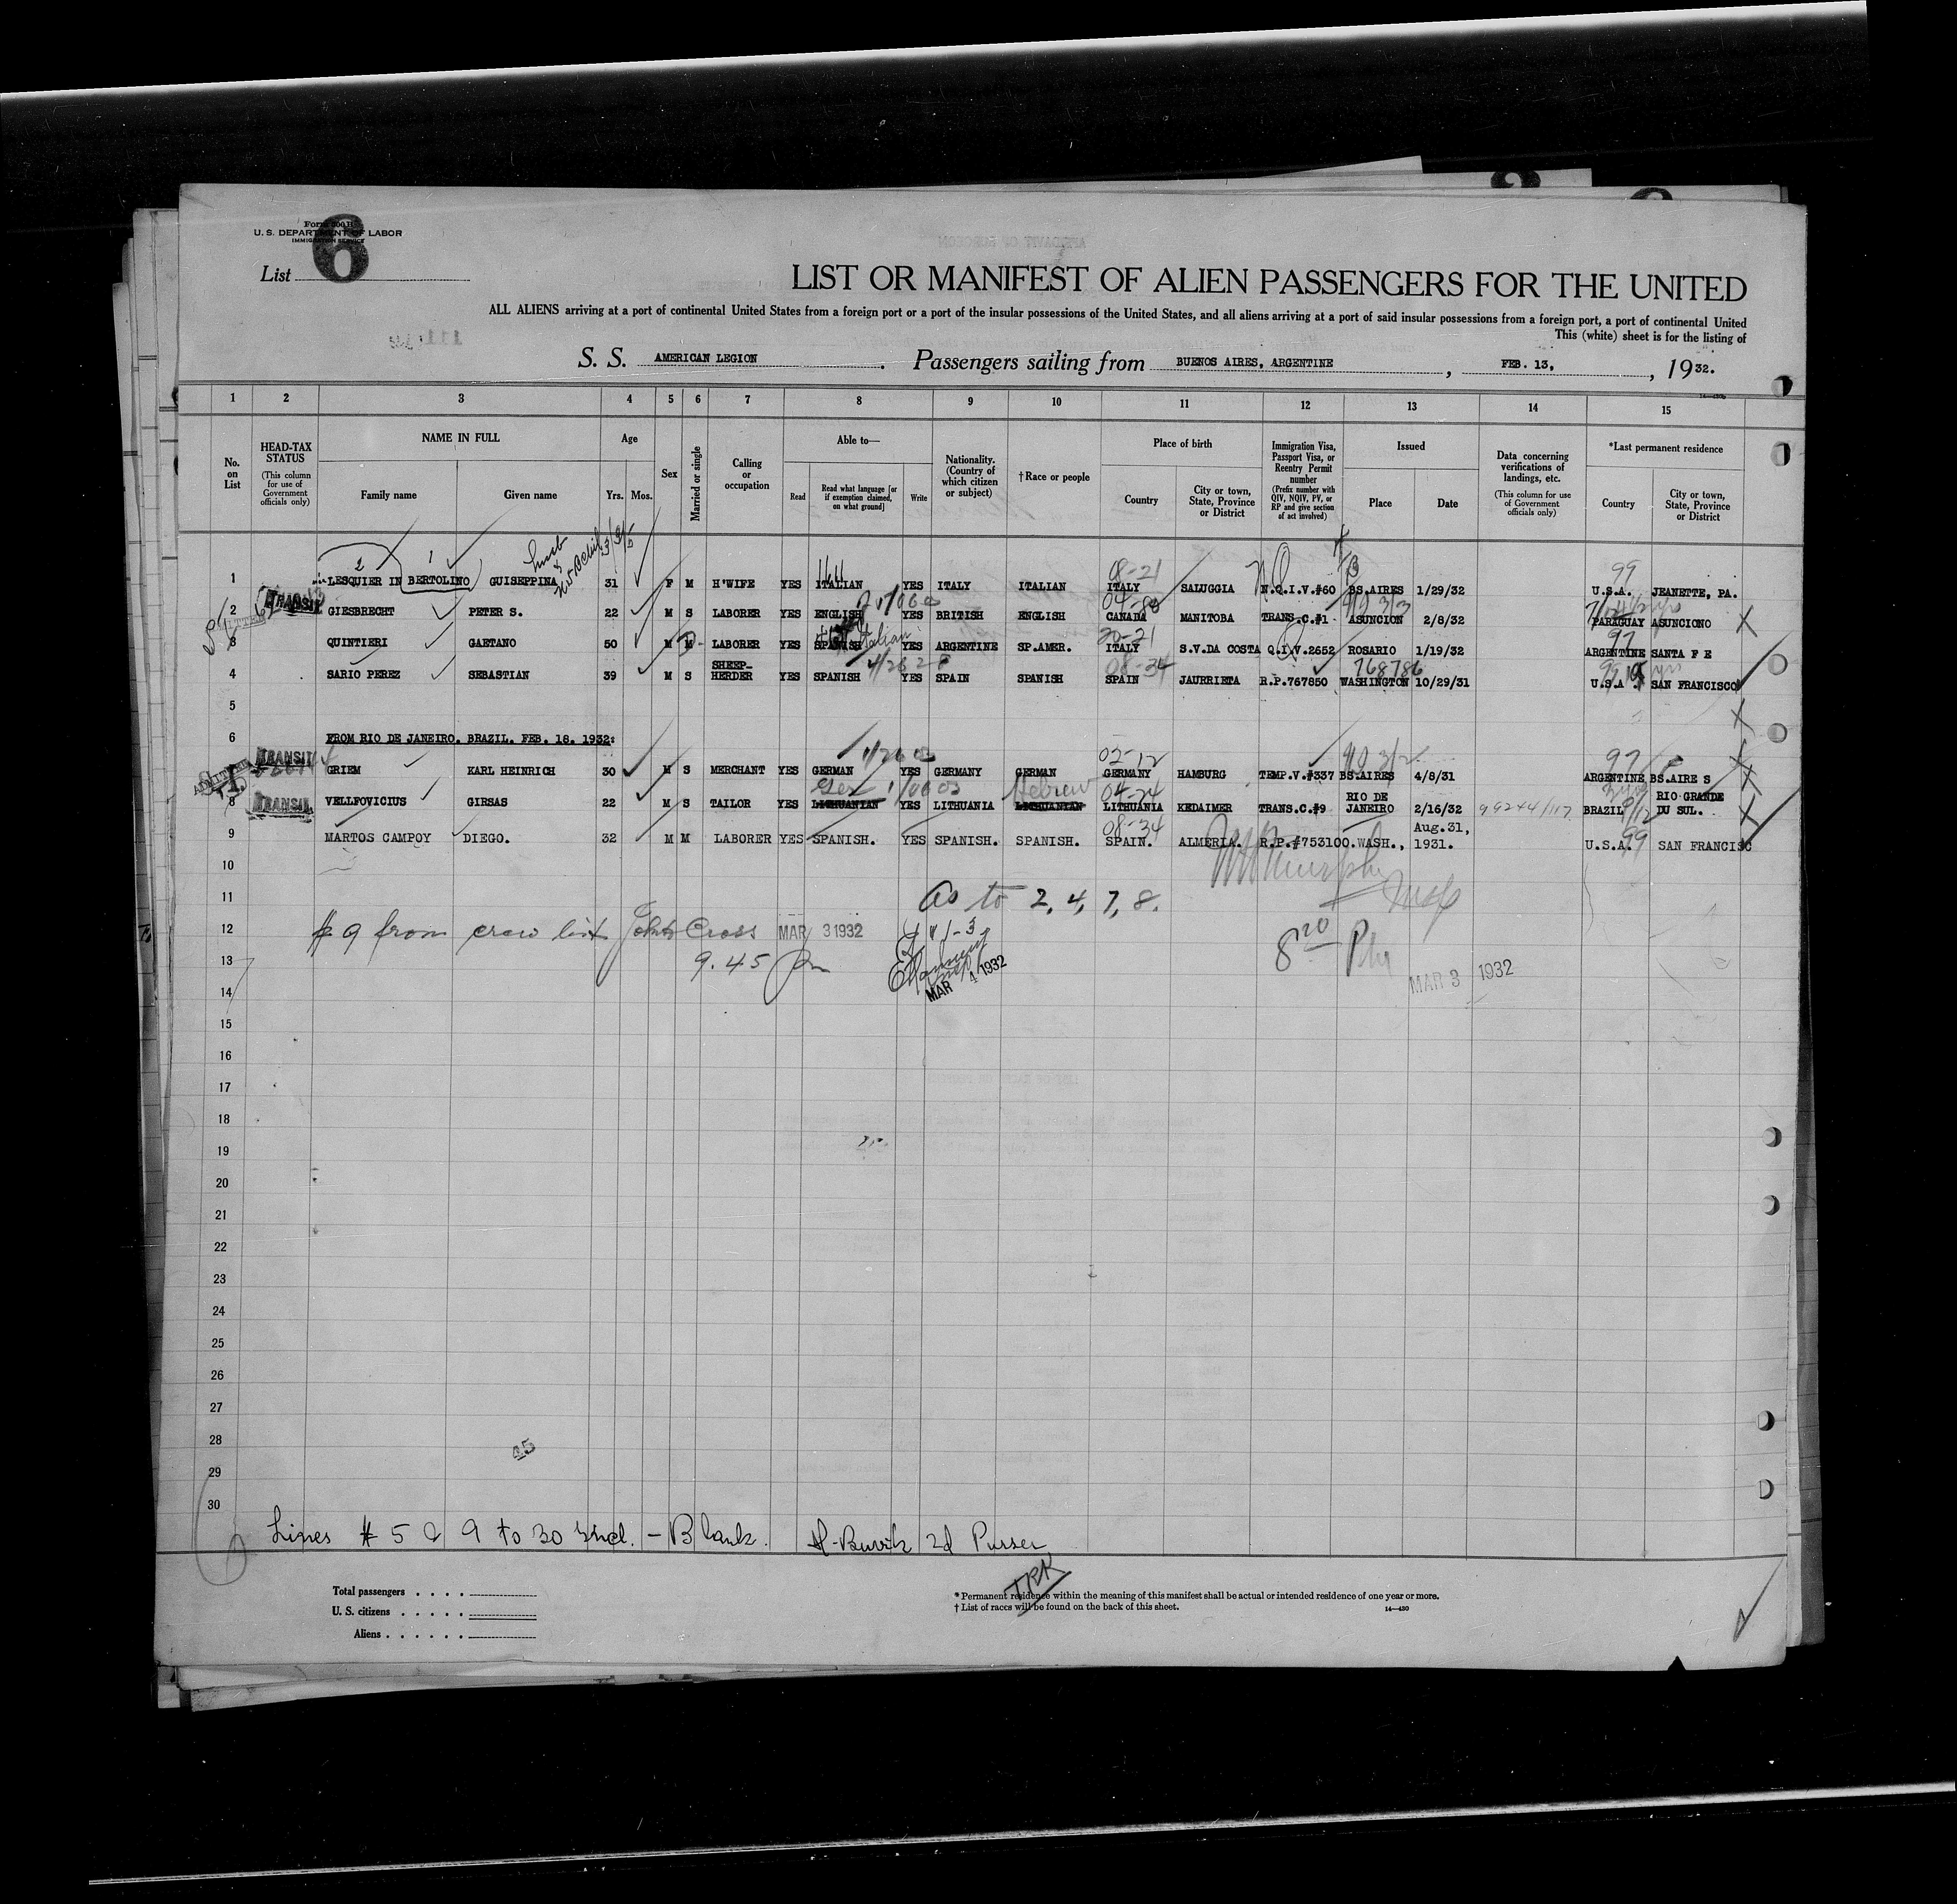 Form 500 B
U. S. DEPARTMENT OF LABOR
IMMIGRATION SERVICE
List 6
LIST OR MANIFEST OF ALIEN PASSENGERS FOR THE UNITED
ALL ALIENS arriving at a port of continental United States from a foreign port or a port of the insular possessions of the United States, and all aliens arriving at a port of said insular possessions from a foreign port, a port of continental United
This (white) sheet is for the listing of
S. S. AMERICAN LEGION. Passengers sailing from BUENOS AIRES, ARGENTINE, FEB. 13, 1932.
1 2 3 4 5 6 7 8 9 10 11 12 13 14 15
No. on List
HEAD-TAX STATUS (This column for use of Government officials only)
NAME IN FULL
Family name Given name
Age
Yrs. Mos.
Sex
Married or single
Calling or occupation
Able to—
Read
Read what language [or if exemption claimed, on what ground]
Write
Nationality. (Country of which citizen or subject)
†Race or people
Place of birth
Country City or town, State, Province or District
Immigration Visa, Passport Visa, or Reentry Permit number (Prefix number with QIV, NQIV, PV, or RP and give section of act involved)
Issued
Place Date
Data concerning verifications of landings, etc. (This column for use of Government officials only)
*Last permanent residence
Country City or town, State, Province or District
2 1 08-21 99
1 LESQUIER IN BERTOLINO GUISEPPINA 31 F M H'WIFE YES ITALIAN YES ITALY ITALIAN ITALY SALUGGIA N.Q.I.V.#60 BS.AIRES 1/29/32 U.S.A. JEANETTE, PA.
2 TRANSIT GIESBRECHT PETER S. 22 M S LABORER YES ENGLISH YES BRITISH ENGLISH CANADA MANITOBA TRANS.C.#1 ASUNCION 2/8/32 PARAGUAY ASUNCIONO X
Italian 20-21 97
3 QUINTIERI GAETANO 50 M M LABORER YES SPANISH YES ARGENTINE SP.AMER. ITALY S.V.DA COSTA Q.I.V.2652 ROSARIO 1/19/32 ARGENTINE SANTA F E
08-34 768786
4 SARIO PEREZ SEBASTIAN 39 M S SHEEP-HERDER YES SPANISH YES SPAIN SPANISH SPAIN JAURRIETA R.P.767850 WASHINGTON 10/29/31 U.S.A. SAN FRANCISCO
5
6 FROM RIO DE JANEIRO. BRAZIL. FEB. 18. 1932:
02-12 97
TRANSIT GRIEM KARL HEINRICH 30 M S MERCHANT YES GERMAN YES GERMANY GERMAN GERMANY HAMBURG TEMP.V.#337 BS.AIRES 4/8/31 ARGENTINE BS.AIRE S X
Ger Hebrew 04-24
8 TRANSIT VELLFOVICIUS GIRSAS 22 M S TAILOR YES LITHUANIAN YES LITHUANIA LITHUANIAN LITHUANIA KEDAIMER TRANS.C.#9 RIO DE JANEIRO 2/16/32 BRAZIL RIO GRANDE DU SUL. X
08-34 99
9 MARTOS CAMPOY DIEGO. 32 M M LABORER YES SPANISH. YES SPANISH. SPANISH. SPAIN. ALMERIA. R.P.#753100. WASH., Aug.31, 1931. U.S.A. SAN FRANCISC
10
11 As to 2, 4, 7, 8.
12 # 9 from crew list John Cross MAR 3 1932
13 9.45 pm MAR 4 1932 8 20 PM MAR 3 1932
14
15
16
17
18
19
20
21
22
23
24
25
26
27
28
45
29
30
Lines # 5 & 9 to 30 incl. - Blank. 2d Purser
Total passengers . . . .
U. S. citizens . . . . .
Aliens . . . . . .
* Permanent residence within the meaning of this manifest shall be actual or intended residence of one year or more.
† List of races will be found on the back of this sheet.
14—430